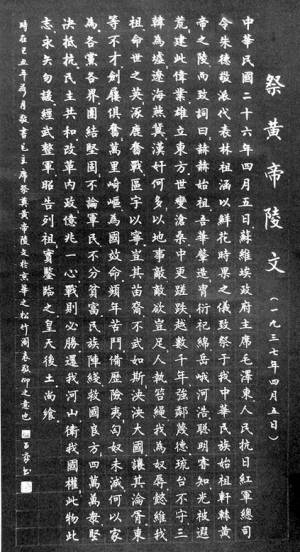 祭黄帝陵文
(一九三七年四月五日)
中華民國二十六年四月五日蘇維埃政府主席毛澤東人民抗日紅軍總司
令朱德敬派代表林祖涵以鮮花時果之儀致祭于我中華民族始祖軒轅黄
帝之陵而致詞曰赫赫始祖吾華肇造胄衍祀綿岳峨河浩聰明睿知光被遐
荒建此偉業雄立東方世變滄桑中更蹉跌越數千年強鄰蔑德琉台不守三
韓為墟遼海燕冀漢奸何多以地事敵敵欲豈足人執笞繩我為奴辱懿維我
祖命世之英涿鹿奮戰區宇以寧豈其苗裔不武如斯泱泱大國讓其淪胥東
等不才劍屨俱奮萬里崎嶇為國效命頻年苦鬥備歷險夷匈奴未滅何以家
為各黨各界團結堅固不論軍民不分貧富民族陣綫救國良方四萬萬衆堅
決抵抗民主共和改革內政億兆一心戰則必勝還我河山衛我國權此物此
志永矢勿諼經武整軍昭告列祖實鑒臨之皇天后土尚飨
時在己丑年荷月敬書毛主席祭奠黄帝陵文於京華之松竹閣表敬仰之意也